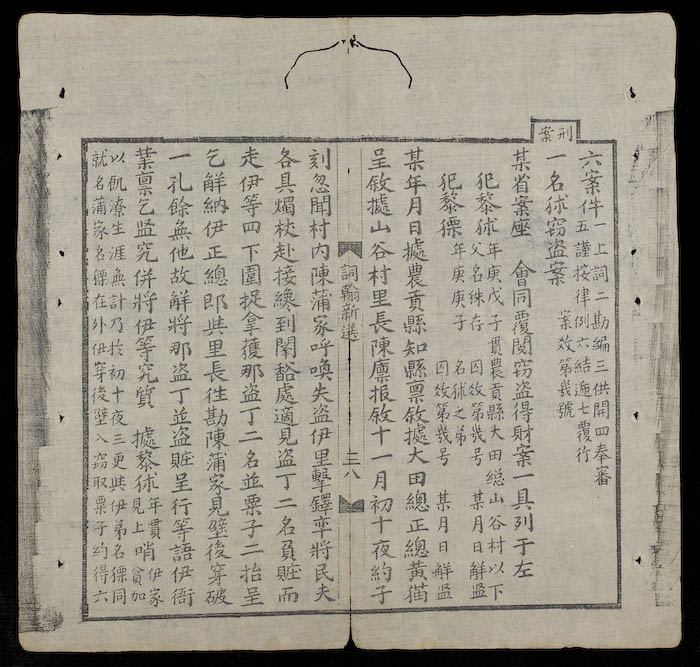 刑案
六案件 一上詞二勘編三供開四奉審
五謹按律例六結逓七覆行
一名秫窃盗案 案效第幾號
某省案座 會同覆閲窃盗得財案一具列于左
犯黎秫 年庚戊子貫農貢縣大田總山谷村以下
父名 存 囚效第幾号 某月日解监
犯黎僄 年庚庚子 名秫之弟
囚效第幾号 某月日解监
某年月日據農貢縣知縣禀敘據大田總正總黃猫
呈敘據山谷村里長陳廪报敘十一月初十夜約子
詞翰新選 三八
刻忽聞村内陳蒲家呼喚失盗伊里擊鐸率將民夫
各具燭杖赴接纔到閑豁處適見盗丁二名負賍而
走伊等四下圍捉拿獲那盗丁二名並粟子二抬呈
乞解納伊正總即共里長往勘陳蒲家見壁後穿破
一孔餘無他故解將那盗丁並盗賍呈行等語伊衙
葉禀乞竪究併將伊等究質 據黎秫年貫見上哨伊家貧加
以飢溱生涯無計乃於初十夜三更共伊弟名僄同
就名蒲家名僄在外伊穿後壁入窃取粟子約得六